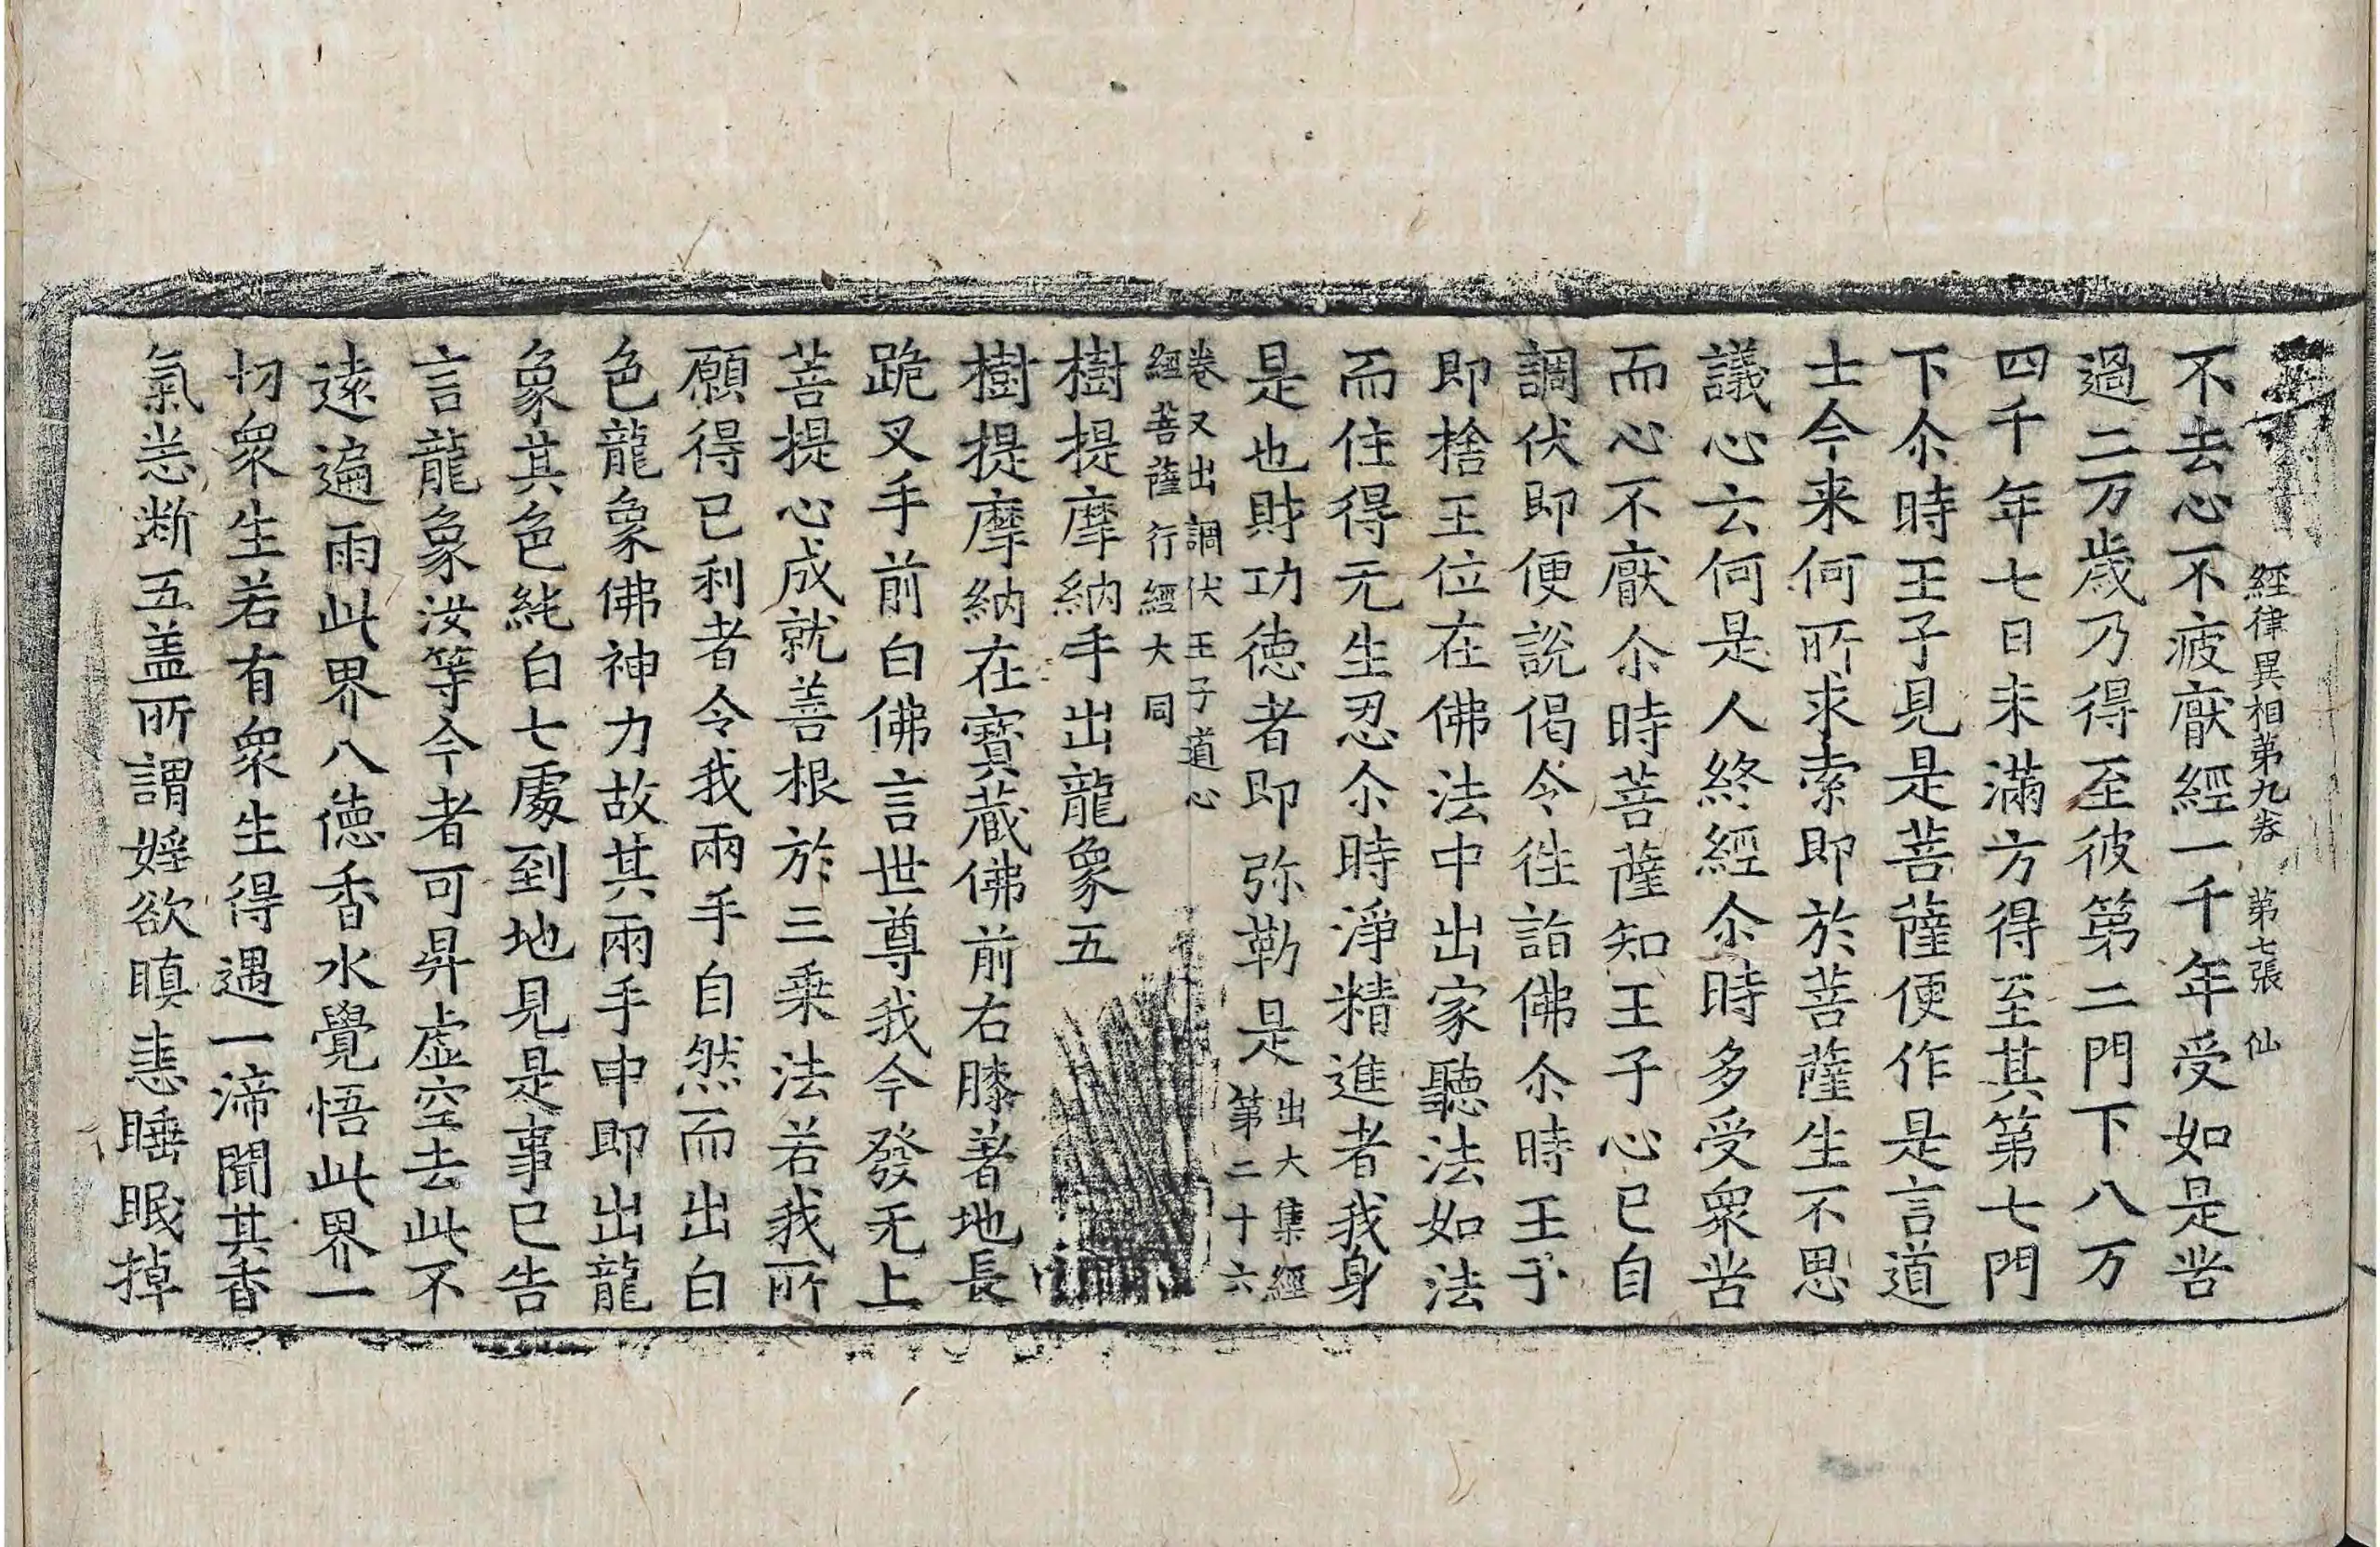 經律異相第九卷 第七張 仙
不去心不疲猒經一千年受如是苦
過二万歲乃得至彼第二門下八万
四千年七日未滿方得至其第七門
下尒時王子見是菩薩便作是言道
士今来何所求索即於菩薩生不思
議心云何是人終經尒時多受衆苦
而心不猒尒時菩薩知王子心已自
調伏即便說偈令徃詣佛尒時王子
即捨王位在佛法中出家聽法如法
而住得无生忍尒時淨精進者我身
是也財功徳者即弥勒是出大集經第二十六
卷又出調伏王子道心
經菩薩行經大同
樹提摩納手出龍象五
樹提摩納在寶蔵佛前右膝著地長
跪叉手前白佛言世尊我今發无上
菩提心成就善根於三乗法若我所
願得已利者令我兩手自然而出白
色龍象佛神力故其兩手中即出龍
象其色純白七處到地見是事已告
言龍象汝等今者可昇虚空去此不
遠遍雨此界八徳香水覺悟此界一
切衆生若有衆生得遇一渧聞其香
氣悉断五盖所謂婬欲瞋恚睡眠掉